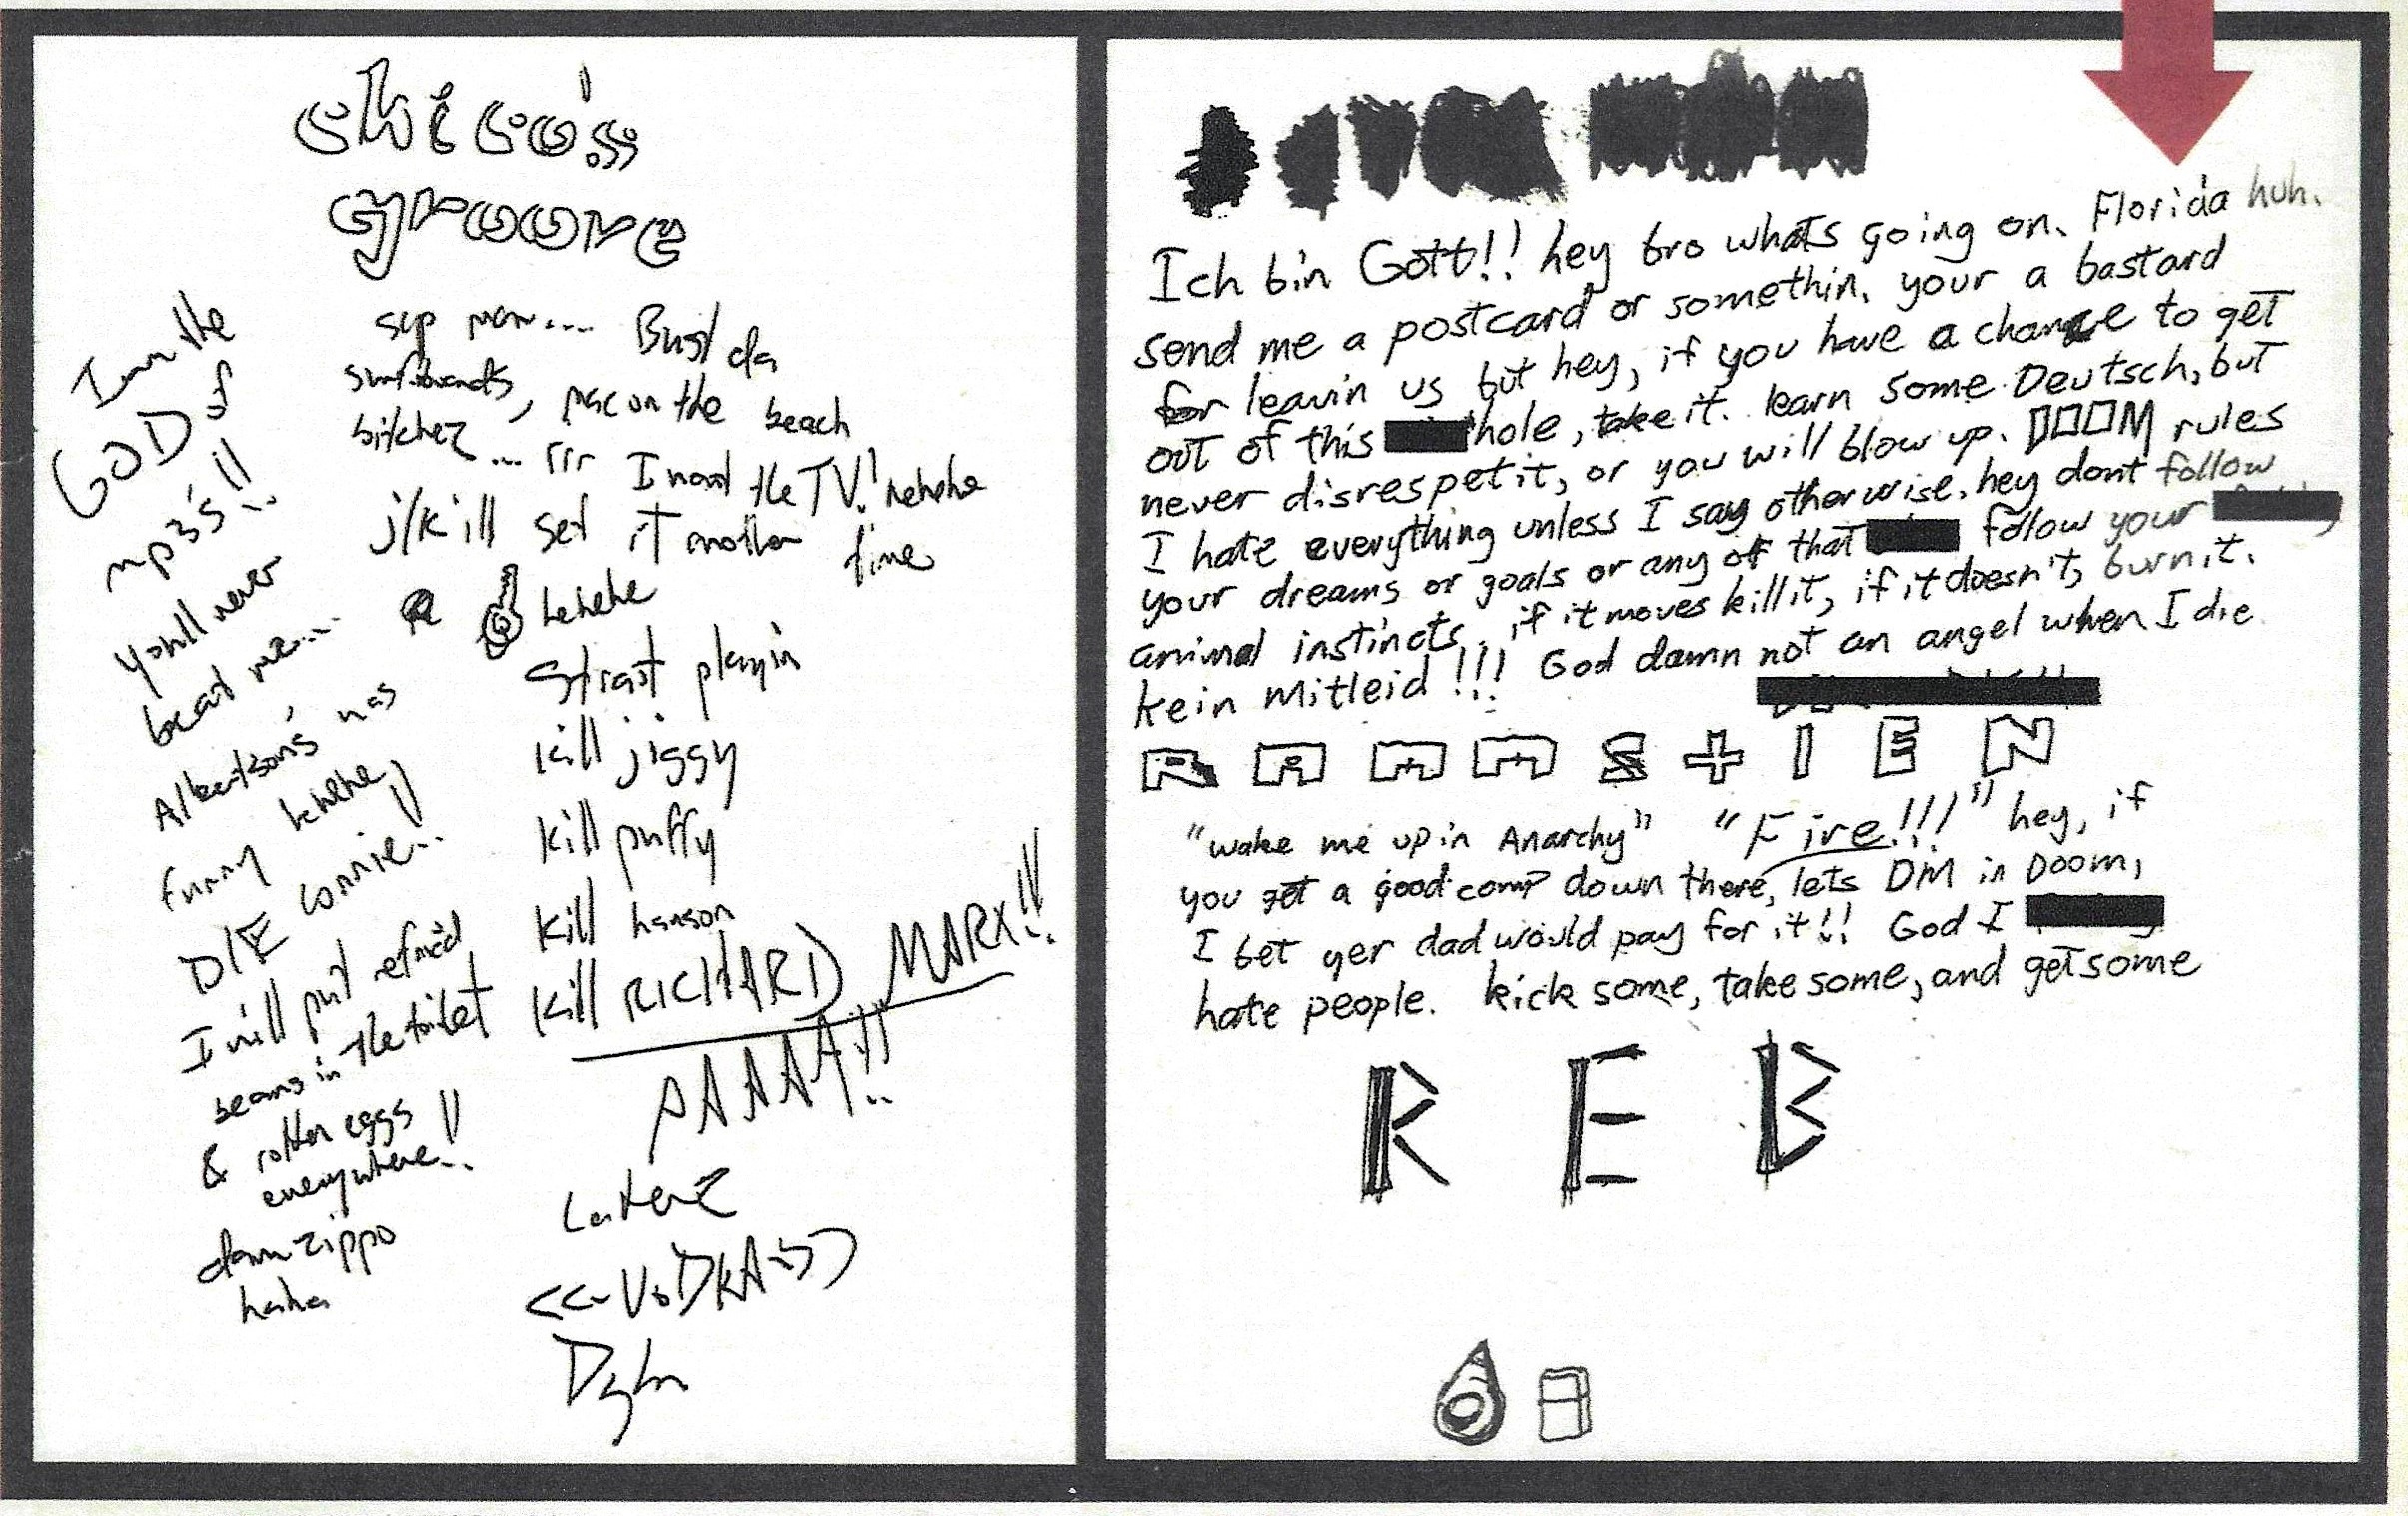 chico's
groove
sup man.... Bust da
surfboards, pac on the beach
bitchez... rrr I want the TV! hehehe
j/k ill set it another time
hehehe
Strait playin
kill jiggy
kill puffy
kill hanson
kill RICHARD MARX!!
AAAA!!
LaterZ
<<-VoDKA->>
Dyln
I am the
GOD of
mp3's!!
youll never
beat me....
Albertson's was
funny hehehe
DIE connie!!
I will put refried
beans in the toilet
& rotten eggs
everywhere!!
damn zippo
haha
Ich bin Gott!! hey bro whats going on. Florida huh.
send me a postcard or somethin. your a bastard
for leavin us but hey, if you have a chance to get
out of this hole, take it. learn some Deutsch, but
never disrespet it, or you will blow up. DOOM rules
I hate everything unless I say otherwise. hey dont follow
your dreams or goals or any of that follow your
animal instincts. if it moves kill it, if it doesn't, burn it.
kein mitleid!!! God damn not an angel when I die
RAMMS+IEN
"wake me up in Anarchy" "Fire!!!" hey, if
you get a good comp down there, lets DM in Doom,
I bet yer dad would pay for it!! God I
hate people. kick some, take some, and get some
REB